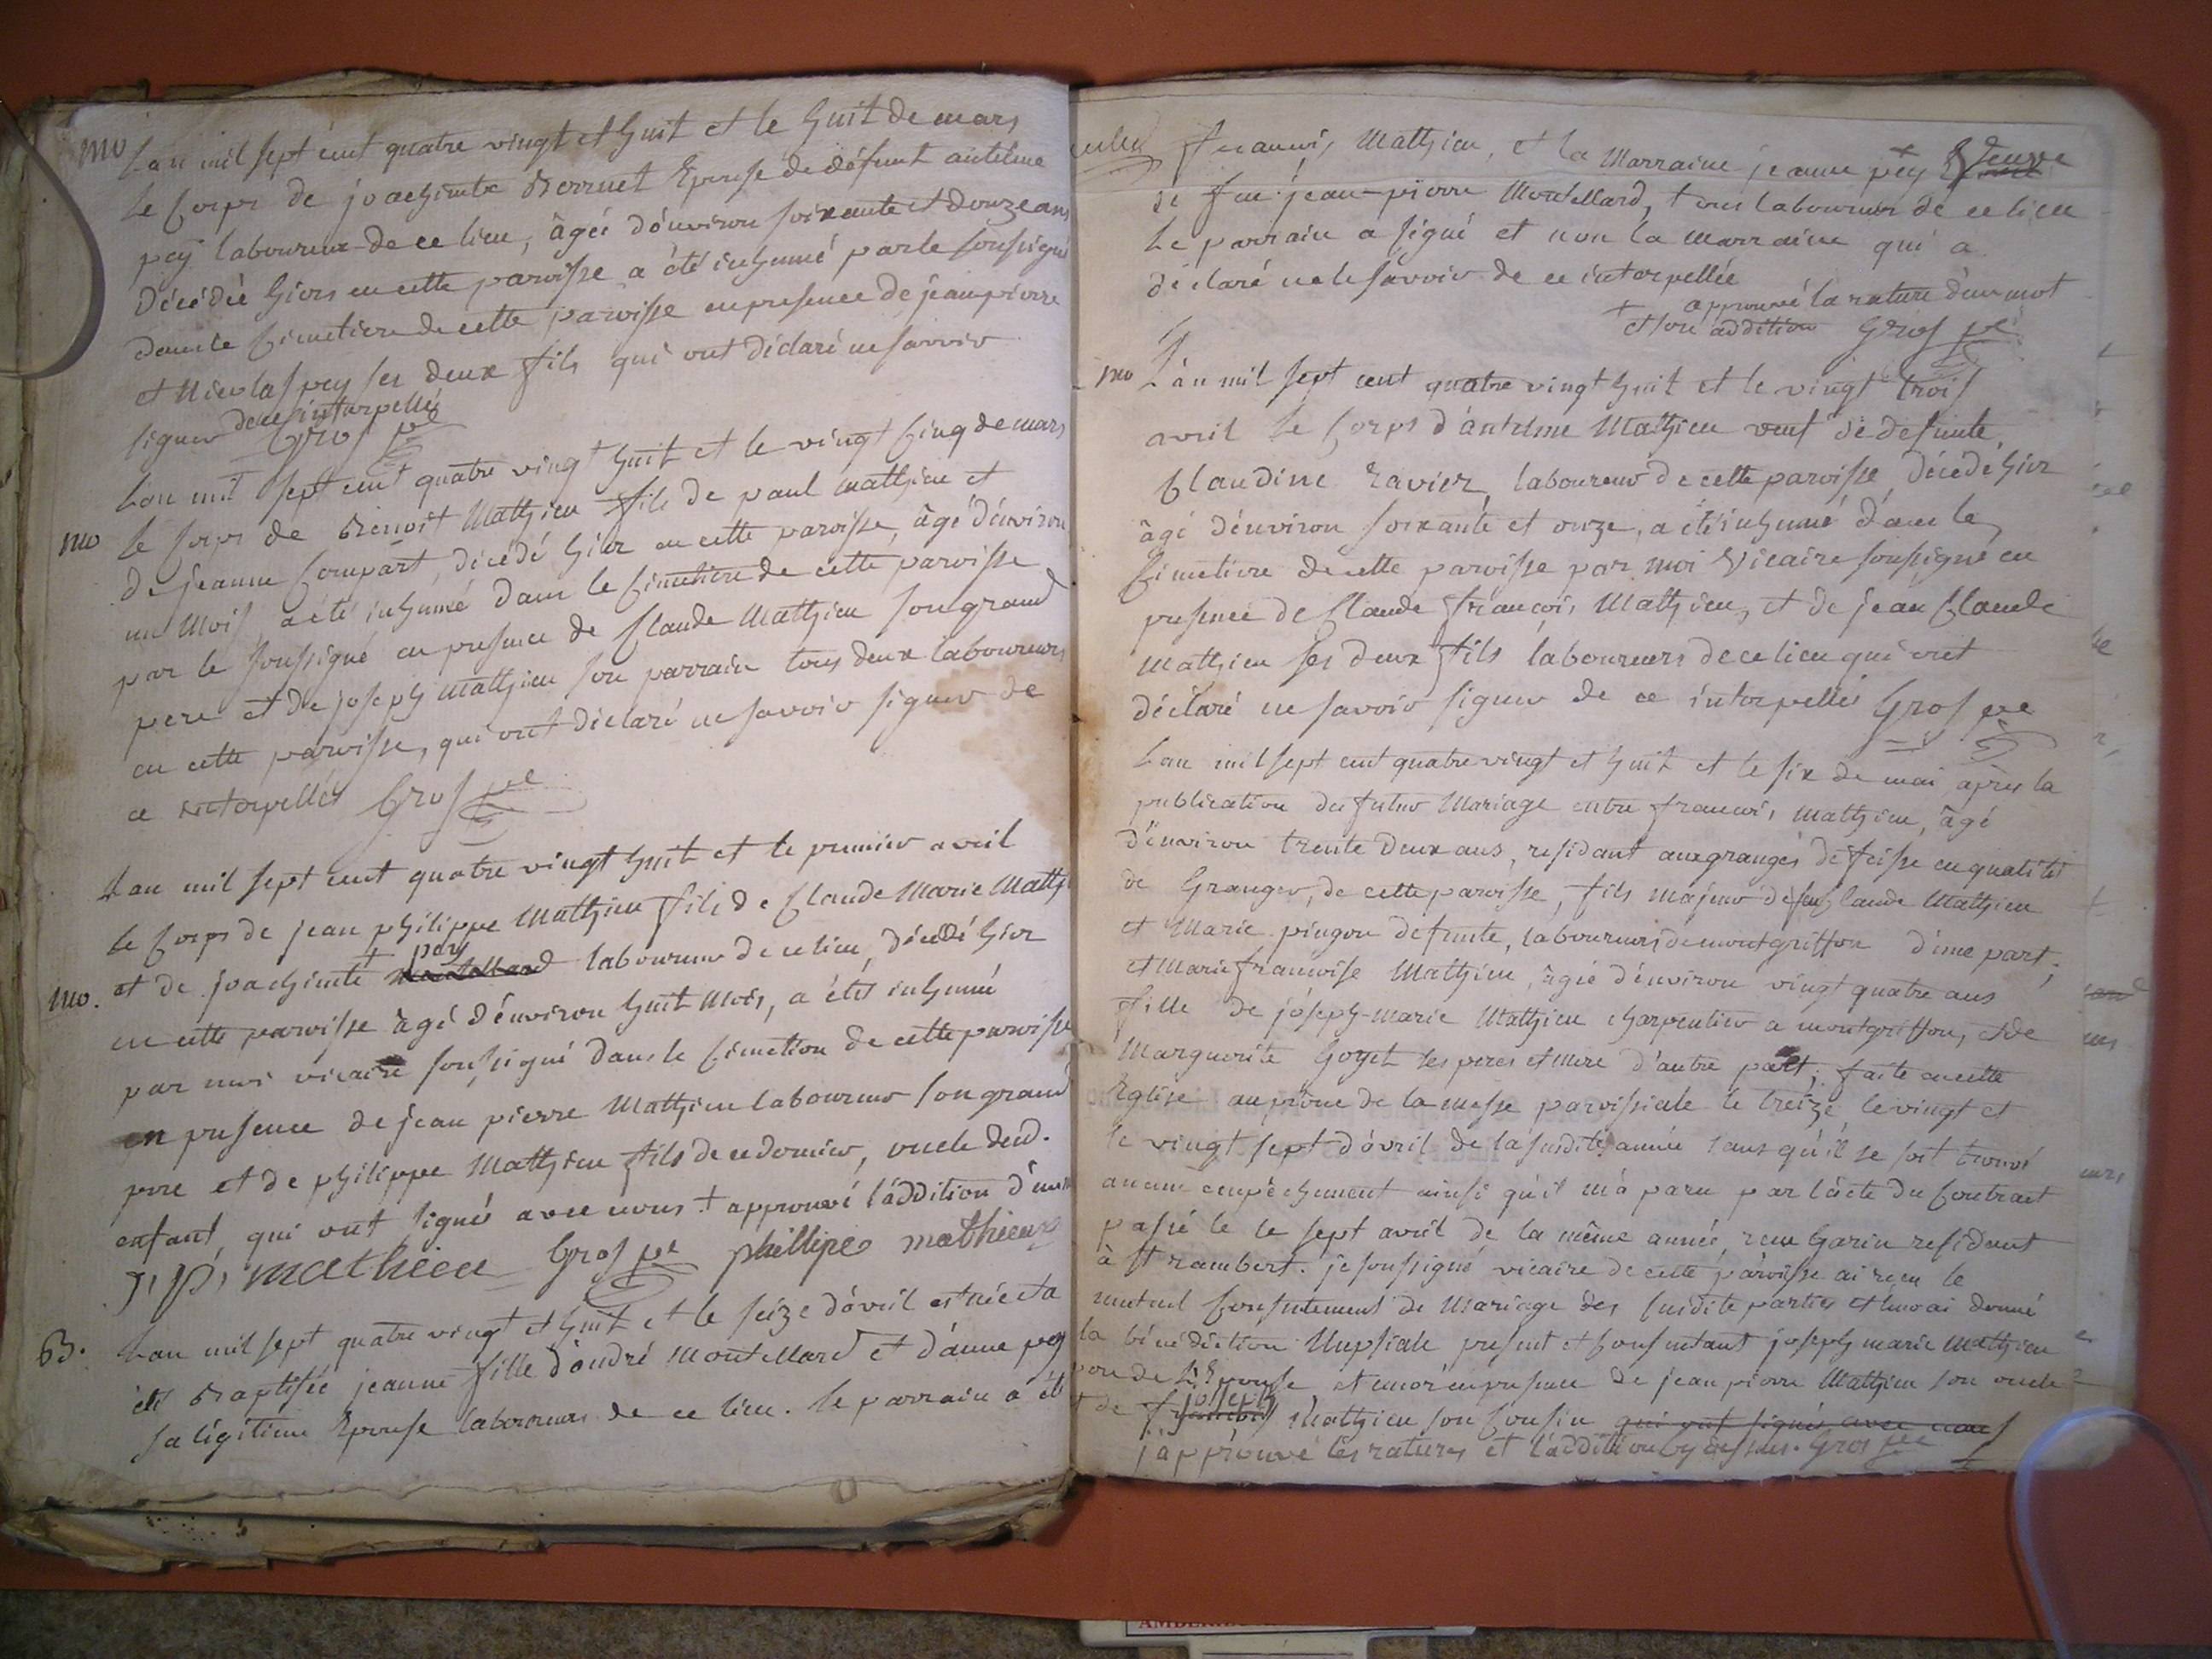 mo
L'an mil sept cent quatre vingt et huit et le huit de mars
Le Corps de joachimte Berrnet Epouse de défunt antelme
pey laboureur de ce lieu, âgée d'environ soixante et douze ans
Décédée hiers en cette paroisse a été inhumé par le soussigné
dans le Cimetiere de cette paroisse en presence de jean pierre
et Nicolas pey ses deux fils qui ont déclaré ne savoir
signer de ce interpellés
Gros vre
L'an mil sept cent quatre vingt huit et le vingt Cinq de mars
mo Le Corps de Benoit Mathieu fils de paul Mathieu et
de jeanne Compart, décédé hier en cette paroisse, âgé d'environ
un Mois, a été inhumé dans le Cimetiere de cette paroisse
par le soussigné en presence de Claude Mathieu son grand
pere et de joseph Mathieu son parrain tous deux laboureurs
en cette paroisse, qui ont déclaré ne savoir signer de
ce interpellés Gros vre
L'an mil sept cent quatre vingt huit et le premier avril
Le Corps de jean philippe Mathieu fils de Claude Marie Math
+ pey
mo. et de joachimte Montellard laboureur de ce lieu, décédé hier
en cette paroisse âgé d'environ huit Mois, a été inhumé
par moi vicaire soussigné dans le Cimetiere de cette paroisse
en presence de jean pierre Mathieu laboureur son grand
pere et de philippe Mathieu fils de ce dernier, oncle dud.
enfant, qui ont signé avec nous + approuvé l'addition d'un
j, p, mathieu Gros vre phillipe mathieu
B. L'an mil sept quatre vingt et huit et le seize d'avril est née et a
été Baptisée jeanne fille d'andré Montellard et d'anne pey
sa légitime Epouse laboureurs de ce lieu. le parrain a été
francois Mathieu, et la Marraine jeanne pey + veuve
de feu jean-pierre Montellard, tous laboureurs de ce lieu
Le parrain a signé et non la marraine qui a
déclaré ne le savoir de ce interpellée
+ approuvé la rature d'un mot
et son addition Gros vre
mo L'an mil sept cent quatre vingt huit et le vingt trois
avril Le Corps d'antelme Mathieu veuf de defunte
Claudine Ravier, laboureur de cette paroisse, décédé hier
âgé d'environ soixante et onze, a été inhumé dans le
Cimetiere de cette paroisse par moi Vicaire soussigné en
presence de Claude francois Mathieu, et de jean Claude
Mathieu ses deux fils laboureurs de ce lieu qui ont
déclaré ne savoir signer de ce interpellés Gros vre
L'an mil sept cent quatre vingt et huit et le six de mai après la
publication du futur Mariage entre francois Mathieu, âgé
d'environ trente deux ans, residant aux granges de feisse en qualité
de Granger, de cette paroisse, fils majeur de feu Claude Mathieu
et Marie pingon defunte, laboureurs de montgriffon d'une part;
et Marie francoise Mathieu, âgée d'environ vingt quatre ans
fille de joseph-marie Mathieu charpentier a montgriffon, et de
Marguerite Goyet ses peres et mere d'autre part; faite en cette
Eglise au prône de la messe paroissiale le treize, le vingt et
le vingt sept d'avril de la susdite année sans qu'il se soit trouvé
aucun empêchement ainsi qu'il m'a paru par l'acte du Contract
passé le le sept avril de la même année, recu Garin residant
à St rambert. je soussigné vicaire de cette paroisse ai recu le
mutuel Consentement de Mariage des susdite parties et leur ai donné
la bénédiction Nupsiale present et Consentant joseph marie Mathieu
pere de l'Epouse et encor en presence de jean pierre Mathieu son oncle
joseph
et de francois Mathieu son Cousin qui ont signés avec nous
j'approuve les ratures et l'addition cy dessus. Gros vre